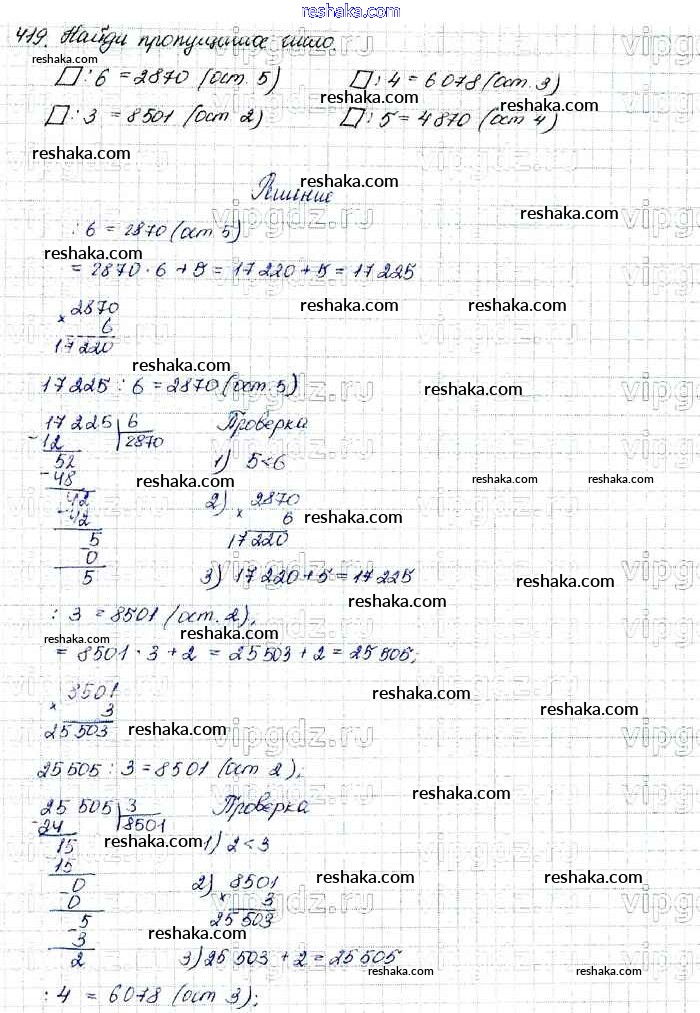 reshaka.com
419. Найди пропущенное число.
reshaka.com
□ : 6 = 2870 (ост. 5) □ : 4 = 6078 (ост. 3)
reshaka.com
□ : 3 = 8501 (ост 2) □ : 5 = 4870 (ост 4)
reshaka.com reshaka.com
reshaka.com
Решение
vipgdz.ru reshaka.com
: 6 = 2870 (ост 5)
reshaka.com
= 2870 · 6 + 5 = 17 220 + 5 = 17 225
× 2870 reshaka.com reshaka.com
6
17 220
reshaka.com
17 225 : 6 = 2870 (ост. 5) reshaka.com
vipgdz.ru
17 225 | 6 Проверка
- 12 | 2870
52 1) 5 < 6
- 48 reshaka.com reshaka.com reshaka.com
42 2) × 2870
- 42 6 reshaka.com
5 17 220
- 0
5 3) 17 220 + 5 = 17 225 reshaka.com
reshaka.com
: 3 = 8501 (ост. 2),
reshaka.com reshaka.com reshaka.com
= 8501 · 3 + 2 = 25 503 + 2 = 25 505;
× 8501 reshaka.com
3
25 503 reshaka.com reshaka.com
vipgdz.ru
25 505 : 3 = 8501 (ост 2),
reshaka.com
25 505 | 3 Проверка
- 24 | 8501
15 reshaka.com 1) 2 < 3 reshaka.com
15
- 0 2) × 8501 reshaka.com reshaka.com
0 3
5 25 503
- 3 reshaka.com reshaka.com
2 3) 25 503 + 2 = 25 505
reshaka.com reshaka.com
: 4 = 6078 (ост 3);
reshaka.com